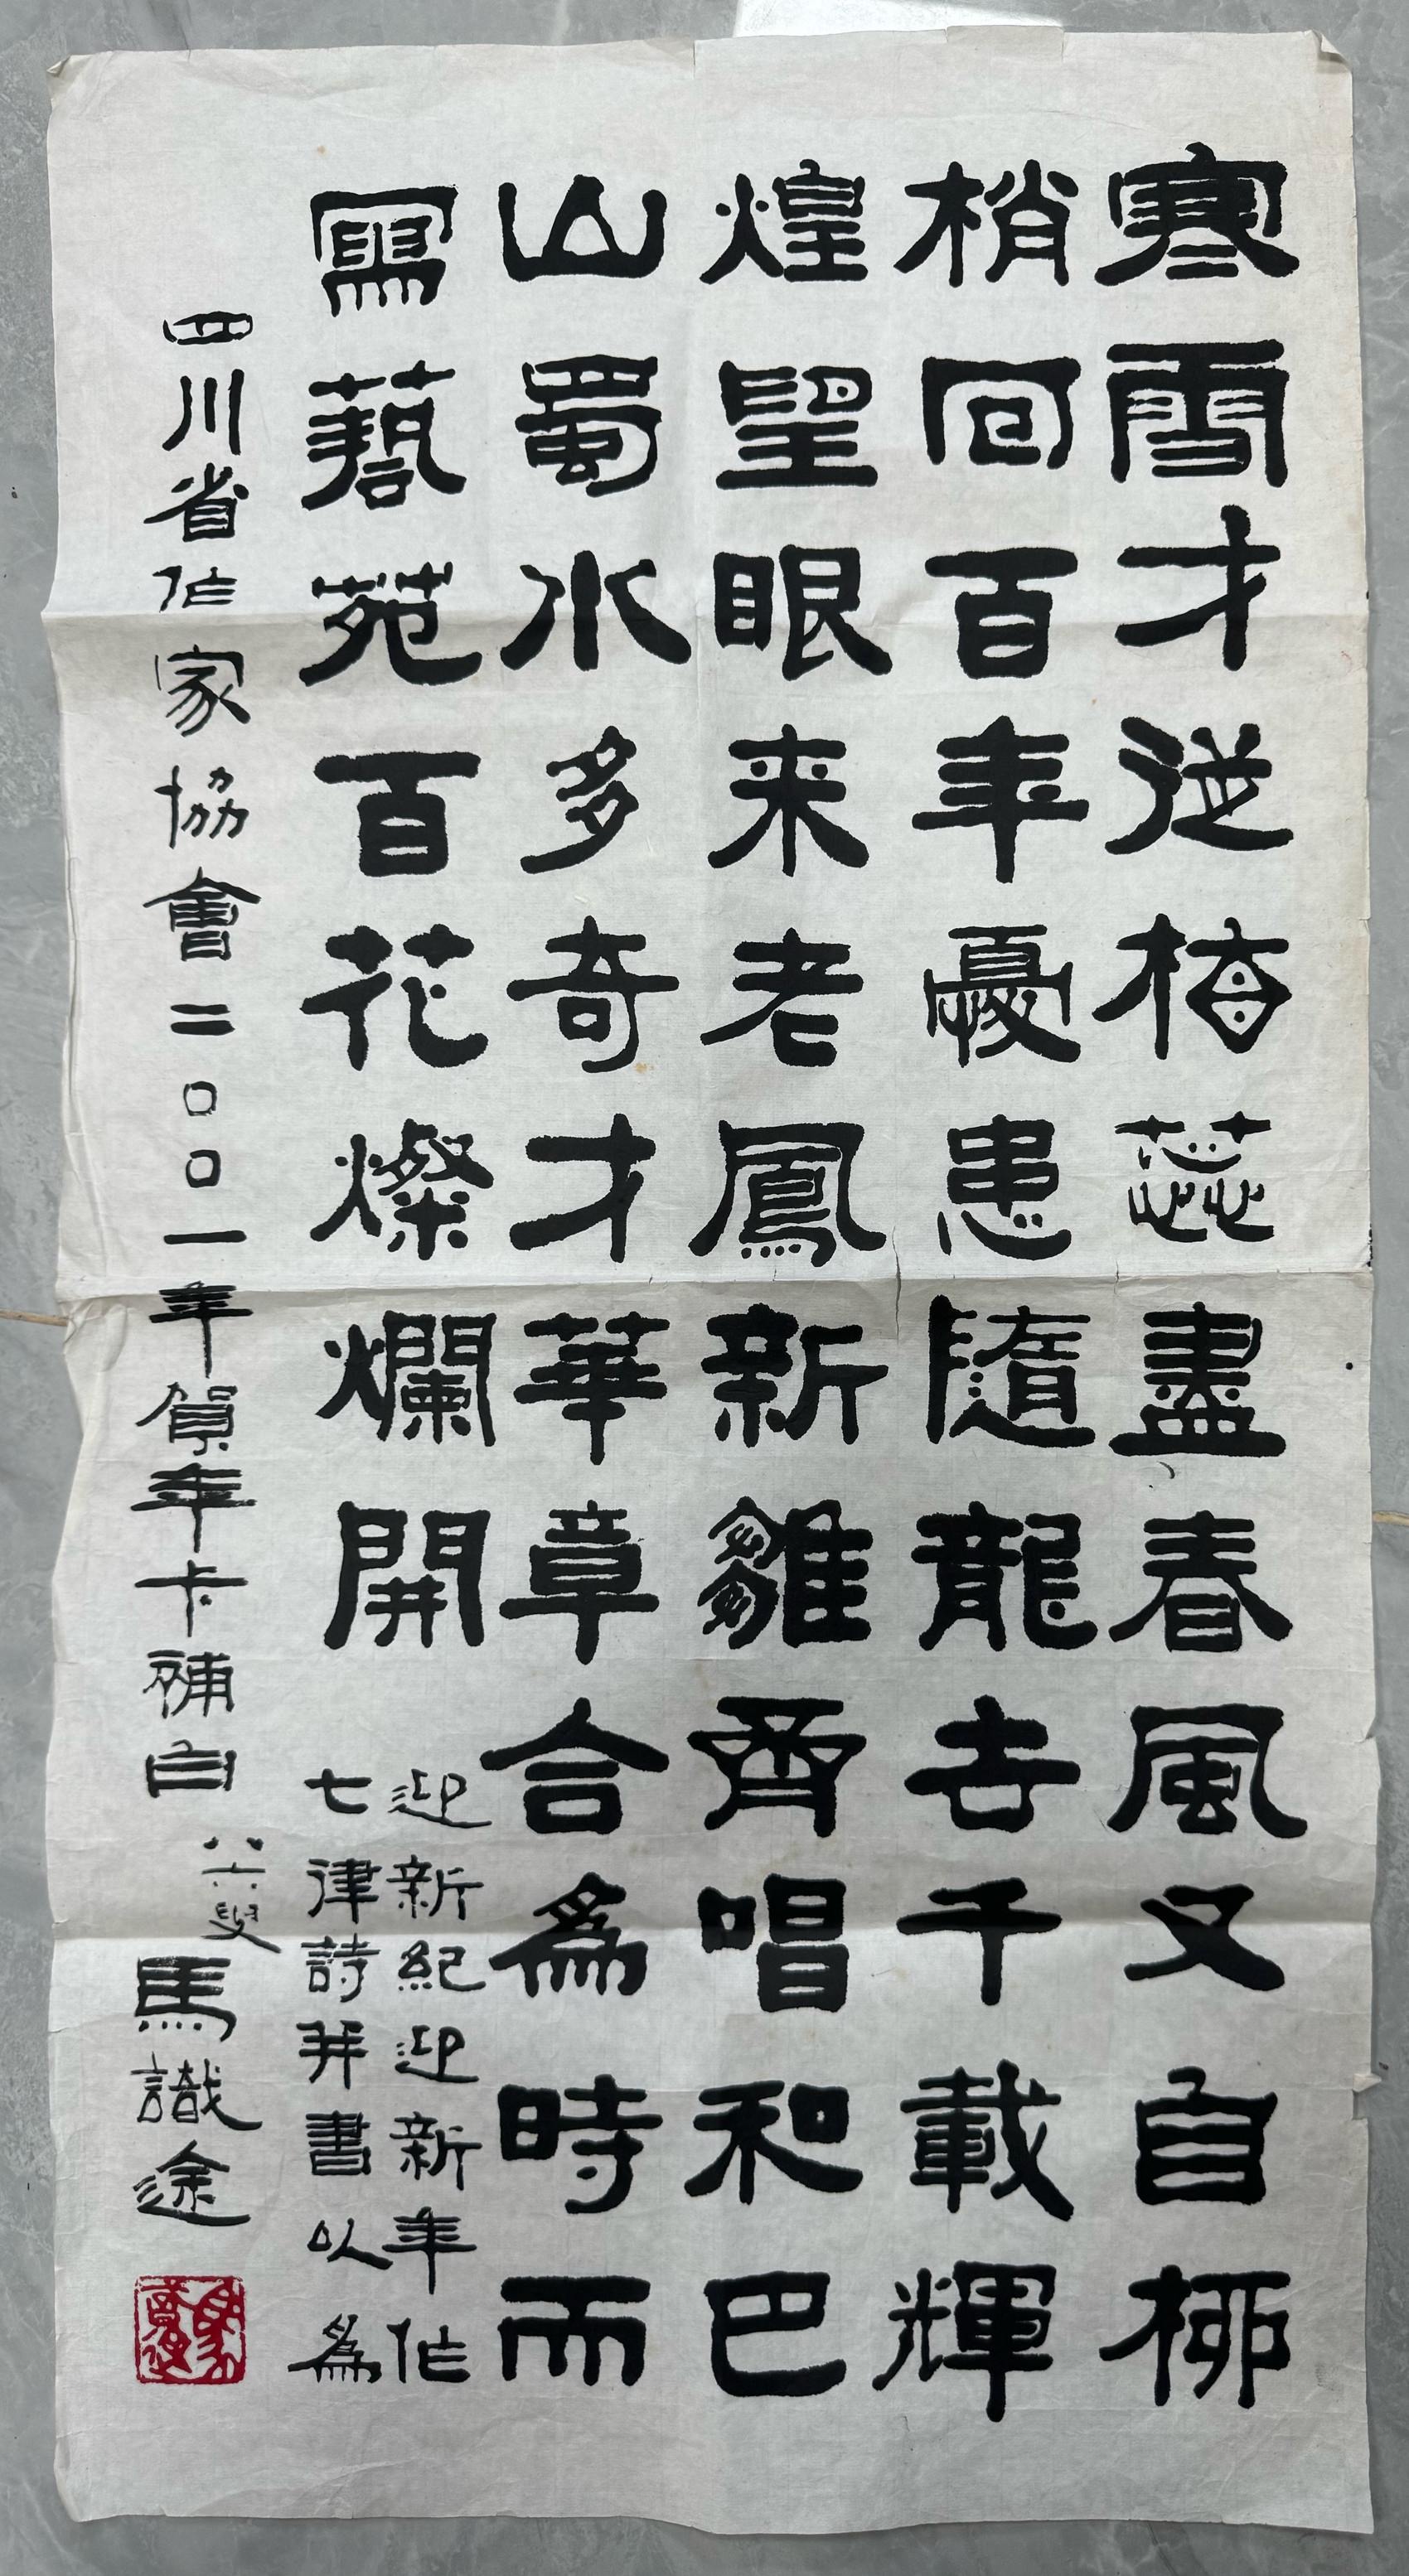 寒雪才從梅蕊盡春風又自柳
梢回百年憂患隨龍去千載輝
煌望眼来老鳳新雛齊唱和巴
山蜀水多奇才華章合為時而
寫藝苑百花燦爛開
迎新紀迎新年作
七律詩并書以為
四川省作家協會二〇〇一年賀年卡補白
八六叟
馬識途